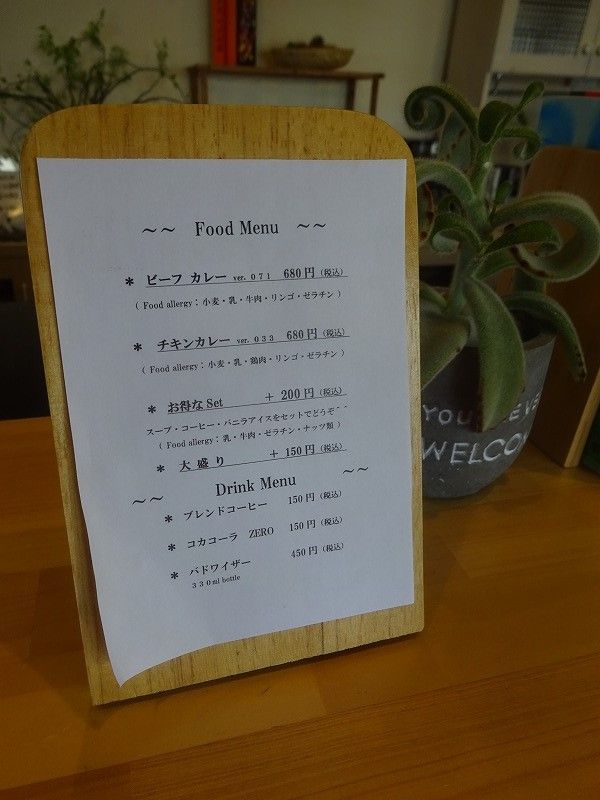 ～～ Food Menu ～～
＊ ビーフ カレー ver. ０７１ 680円（税込）
（ Food allergy：小麦・乳・牛肉・リンゴ・ゼラチン ）
＊ チキンカレー ver. ０３３ 680円（税込）
（ Food allergy：小麦・乳・鶏肉・リンゴ・ゼラチン ）
＊ お得な Set ＋ 200円（税込）
スープ・コーヒー・バニラアイスをセットでどうぞ・・
（ Food allergy：乳・牛肉・ゼラチン・ナッツ類 ）
＊ 大 盛 り ＋ 150円（税込）
～～ Drink Menu ～～
＊ ブレンドコーヒー 150円（税込）
＊ コカコーラ ZERO 150円（税込）
＊ バドワイザー 450円（税込）
３３０ml bottle
WELCO